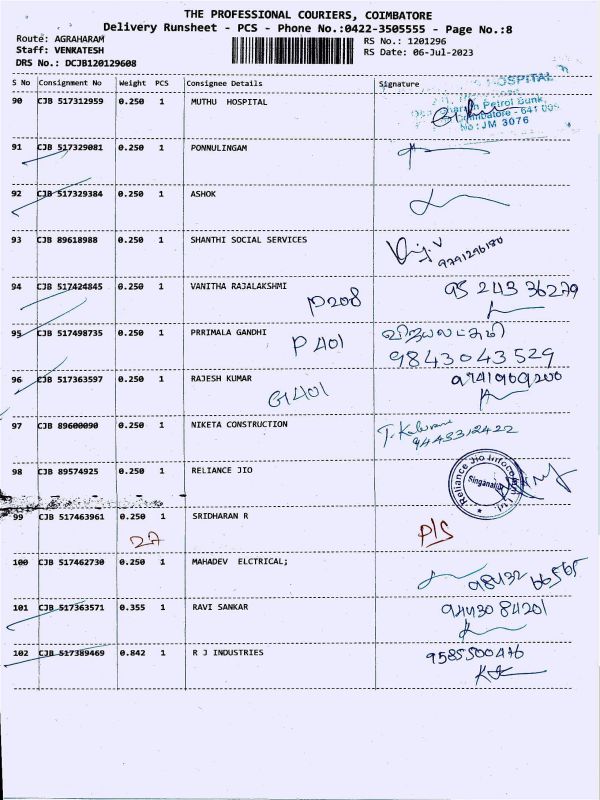 THE PROFESSIONAL COURIERS, COIMBATORE
Delivery Runsheet - PCS - Phone No.:0422-3505555 - Page No.:8
Route: AGRAHARAM
Staff: VENKATESH
DRS No.: DCJB120129608
RS No.: 1201296
RS Date: 06-Jul-2023
S No Consignment No Weight PCS Consignee Details Signature
90 CJB 517312959 0.250 1 MUTHU HOSPITAL
HOSPITAL
Petrol Bunk,
Coimbatore - 641 005
No: JM 3076
91 CJB 517329081 0.250 1 PONNULINGAM
92 CJB 517329384 0.250 1 ASHOK
93 CJB 89618988 0.250 1 SHANTHI SOCIAL SERVICES
9791296180
94 CJB 517424845 0.250 1 VANITHA RAJALAKSHMI
P208 95 243 36279
95 CJB 517498735 0.250 1 PRRIMALA GANDHI
P 401 விஜயலட்சுமி
9843043529
96 CJB 517363597 0.250 1 RAJESH KUMAR
G1401 9741909200
97 CJB 89600090 0.250 1 NIKETA CONSTRUCTION
9443312422
98 CJB 89574925 0.250 1 RELIANCE JIO
Reliance Jio Infocomm Ltd.
Singanallur
99 CJB 517463961 0.250 1 SRIDHARAN R
27 P/S
100 CJB 517462730 0.250 1 MAHADEV ELCTRICAL;
98432 66565
101 CJB 517363571 0.355 1 RAVI SANKAR
94430 84201
102 CJB 517389469 0.842 1 R J INDUSTRIES
9585500476